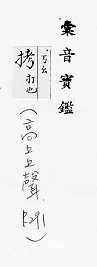 彙音寶鑑
ㄎㄠ
拷 打也
(高上上聲 P.291)